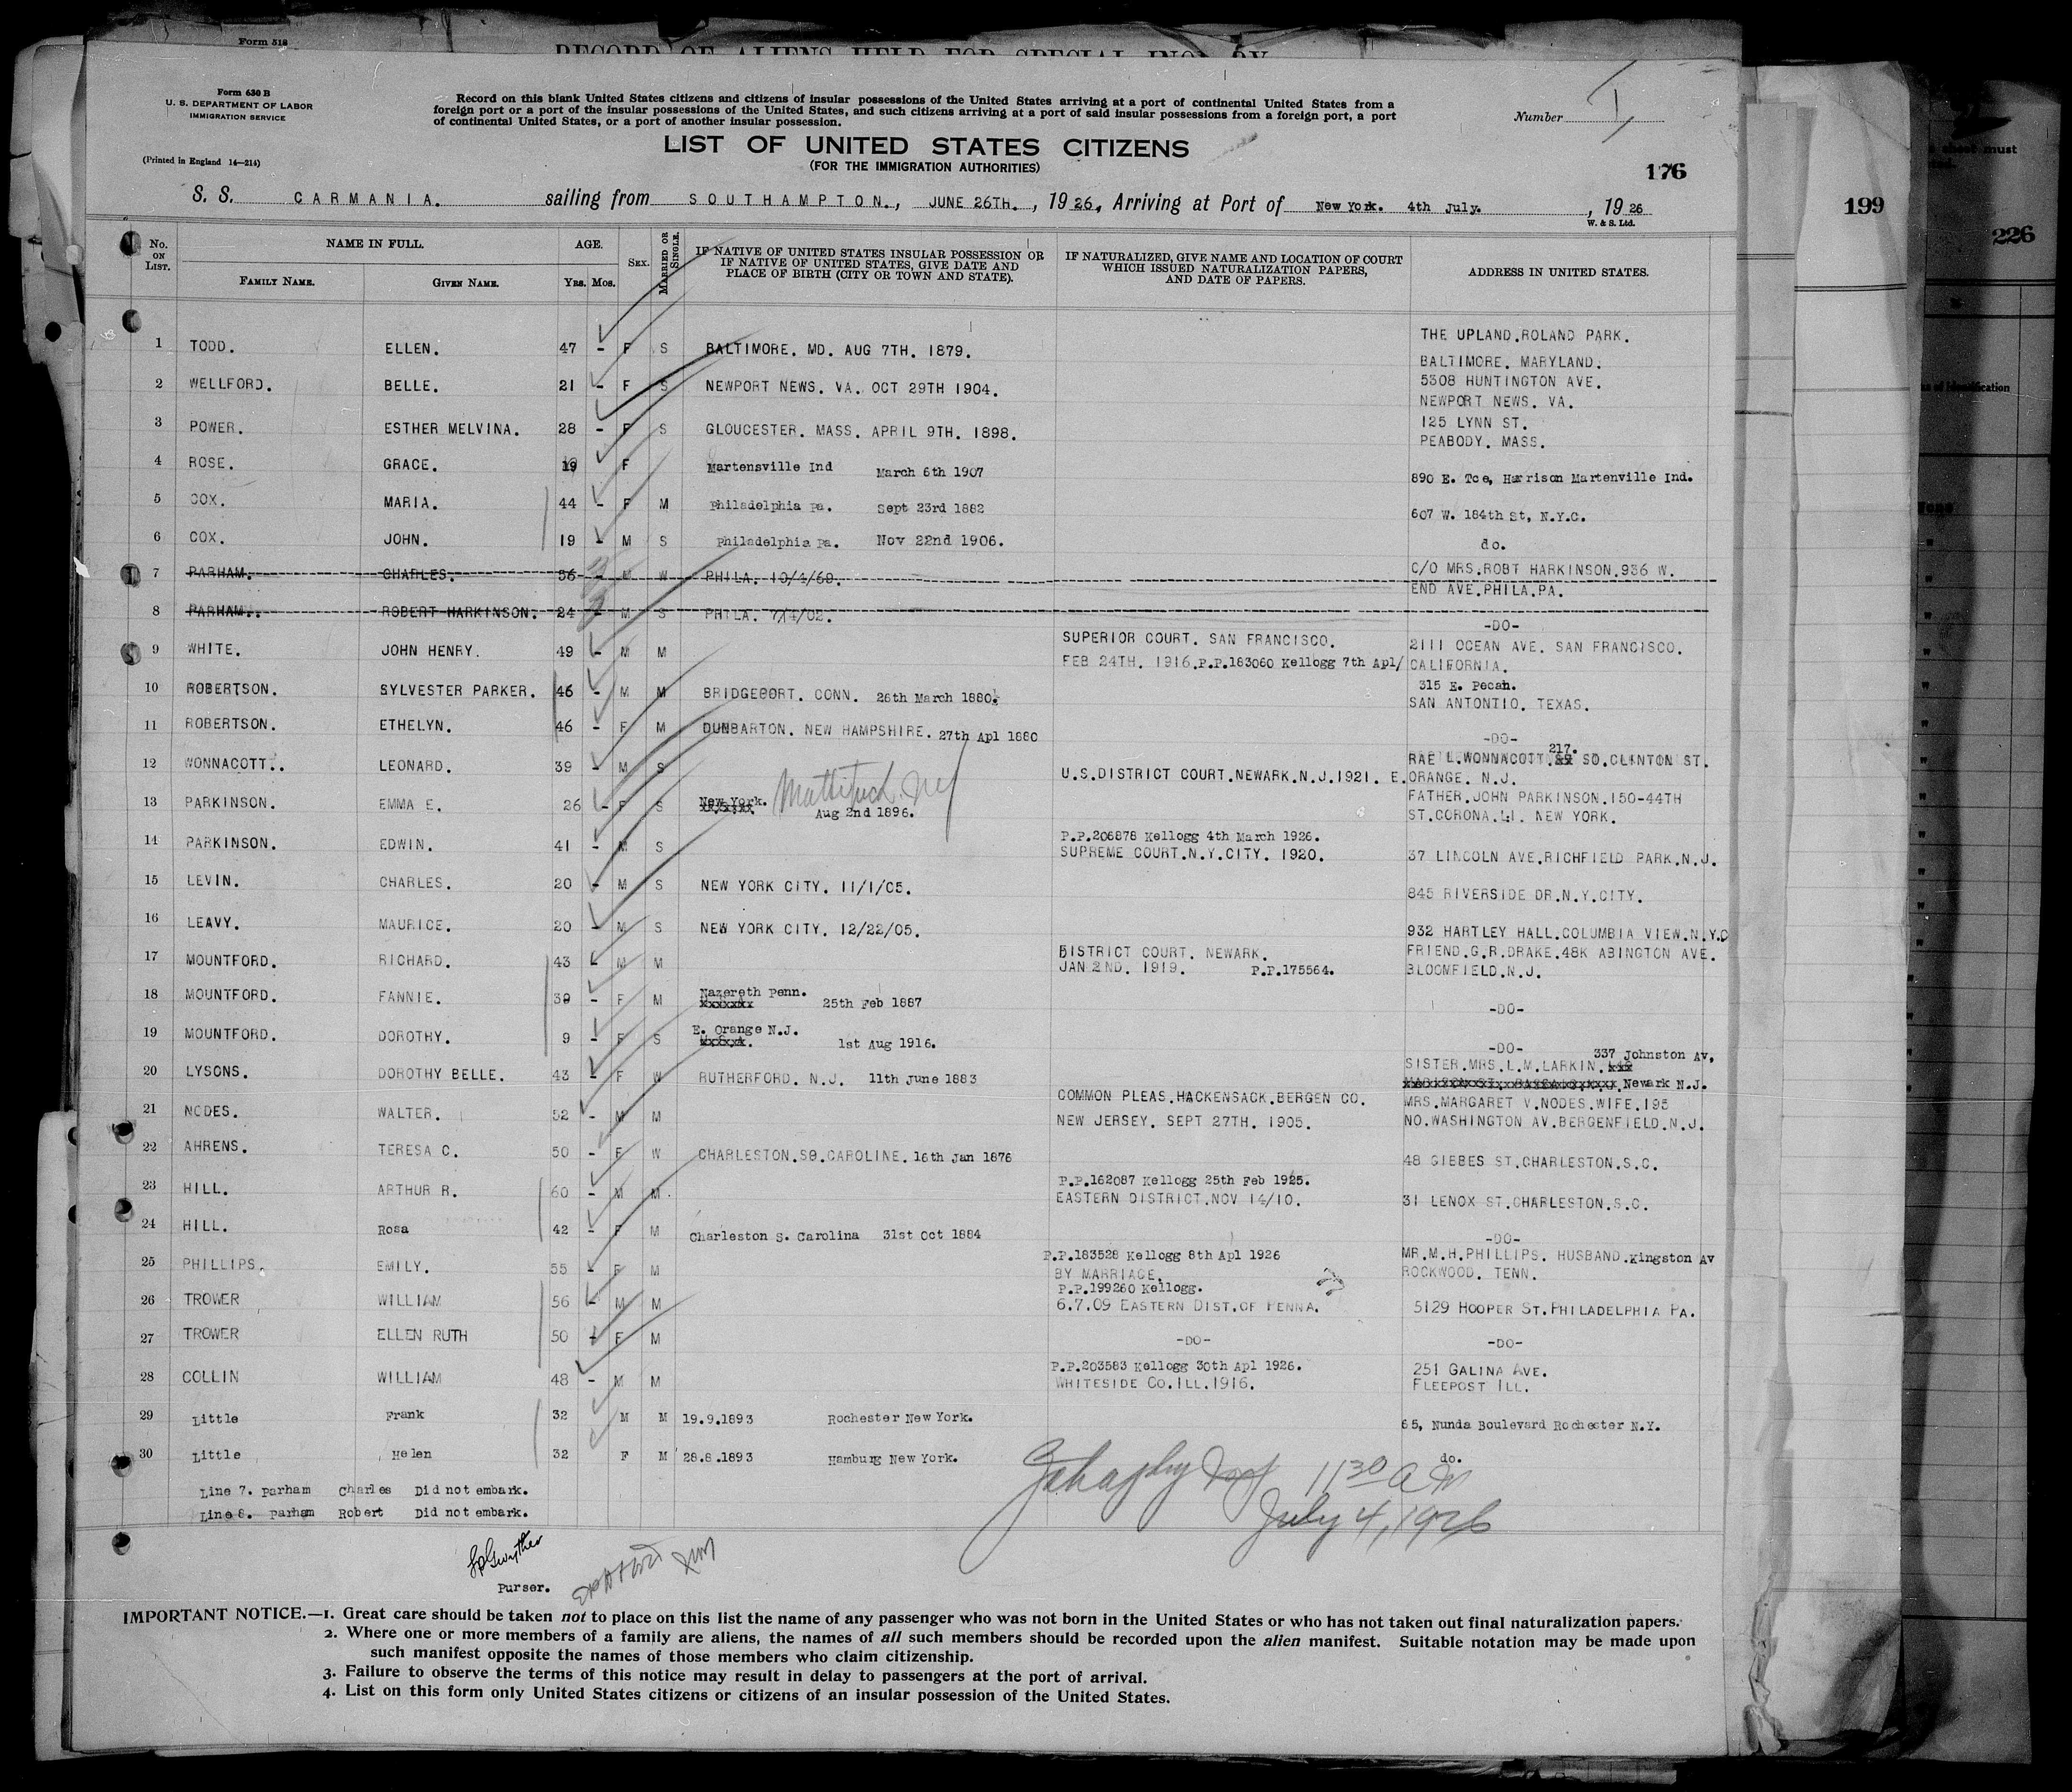 Form 518
RECORD OF ALIENS HELD FOR SPECIAL INQUIRY
Form 630 B
U. S. DEPARTMENT OF LABOR
IMMIGRATION SERVICE
(Printed in England 14—214)
Record on this blank United States citizens and citizens of insular possessions of the United States arriving at a port of continental United States from a
foreign port or a port of the insular possessions of the United States, and such citizens arriving at a port of said insular possessions from a foreign port, a port
of continental United States, or a port of another insular possession.
Number
LIST OF UNITED STATES CITIZENS
(FOR THE IMMIGRATION AUTHORITIES)
176
199
226
S. S. CARMANIA. sailing from SOUTHAMPTON., JUNE 26TH. , 19 26, Arriving at Port of New York. 4th July. , 19 26
W. & S. Ltd.
No. ON LIST. NAME IN FULL. FAMILY NAME. GIVEN NAME. AGE. YRS. MOS. SEX. MARRIED OR SINGLE. IF NATIVE OF UNITED STATES INSULAR POSSESSION OR IF NATIVE OF UNITED STATES, GIVE DATE AND PLACE OF BIRTH (CITY OR TOWN AND STATE). IF NATURALIZED, GIVE NAME AND LOCATION OF COURT WHICH ISSUED NATURALIZATION PAPERS, AND DATE OF PAPERS. ADDRESS IN UNITED STATES.
THE UPLAND.ROLAND PARK.
1 TODD. ELLEN. 47 - F S BALTIMORE. MD. AUG 7TH. 1879.
BALTIMORE. MARYLAND.
2 WELLFORD. BELLE. 21 - F S NEWPORT NEWS. VA. OCT 29TH 1904. 5308 HUNTINGTON AVE.
NEWPORT NEWS. VA.
3 POWER. ESTHER MELVINA. 28 - F S GLOUCESTER. MASS. APRIL 9TH. 1898. 125 LYNN ST.
PEABODY. MASS.
4 ROSE. GRACE. 19 F Martensville Ind March 6th 1907 890 E. Tce, Harrison Martenville Ind.
5 COX. MARIA. 44 - F M Philadelphia Pa. Sept 23rd 1882 607 W. 184th St, N.Y.C.
6 COX. JOHN. 19 - M S Philadelphia Pa. Nov 22nd 1906. do.
7 PARHAM. CHARLES. 56 - M W PHILA. 10/4/69. C/O MRS.ROBT HARKINSON.936 W.
END AVE.PHILA.PA.
8 PARHAM.. ROBERT HARKINSON. 24 - M S PHILA. 7/4/02. -DO-
9 WHITE. JOHN HENRY. 49 - M M SUPERIOR COURT. SAN FRANCISCO. 2111 OCEAN AVE. SAN FRANCISCO.
FEB 24TH. 1916.P.P.183060 Kellogg 7th Apl/ CALIFORNIA.
10 ROBERTSON. SYLVESTER PARKER. 46 - M M BRIDGEPORT. CONN. 26th March 1880. 315 E. Pecan.
SAN ANTONTIO. TEXAS.
11 ROBERTSON. ETHELYN. 46 - F M DUNBARTON. NEW HAMPSHIRE. 27th Apl 1880 -DO-
217.
12 WONNACOTT.. LEONARD. 39 - M S RAE L.WONNACOTT. SO.CLINTON ST.
U.S.DISTRICT COURT.NEWARK.N.J.1921. E.ORANGE. N.J.
13 PARKINSON. EMMA E. 26 - F S New York. Mattituck NY FATHER.JOHN PARKINSON.150-44TH
Aug 2nd 1896. ST.CORONA.LI. NEW YORK.
14 PARKINSON. EDWIN. 41 - M S P.P.206878 Kellogg 4th March 1926.
SUPREME COURT.N.Y.CITY. 1920. 37 LINCOLN AVE.RICHFIELD PARK.N.J.
15 LEVIN. CHARLES. 20 - M S NEW YORK CITY. 11/1/05. 845 RIVERSIDE DR.N.Y.CITY.
16 LEAVY. MAURICE. 20 - M S NEW YORK CITY. 12/22/05. 932 HARTLEY HALL.COLUMBIA VIEW.N.Y.C
17 MOUNTFORD. RICHARD. 43 - M M DISTRICT COURT. NEWARK. FRIEND.G.R.DRAKE.48K ABINGTON AVE.
JAN 2ND. 1919. P.P.175564. BLOOMFIELD.N.J.
18 MOUNTFORD. FANNIE. 39 - F M Nazereth Penn. 25th Feb 1887 -DO-
19 MOUNTFORD. DOROTHY. 9 - F S E. Orange N.J. 1st Aug 1916. -DO-
337 Johnston Av,
20 LYSONS. DOROTHY BELLE. 43 - F W RUTHERFORD. N.J. 11th June 1883 SISTER.MRS.L.M.LARKIN.
Newark N.J.
21 NODES. WALTER. 52 - M M COMMON PLEAS.HACKENSACK.BERGEN CO. MRS.MARGARET V.NODES.WIFE.195
NEW JERSEY. SEPT 27TH. 1905. NO.WASHINGTON AV.BERGENFIELD.N.J.
22 AHRENS. TERESA C. 50 - F W CHARLESTON.SO.CAROLINE. 16th Jan 1876 48 GIBBES ST.CHARLESTON.S.C.
23 HILL. ARTHUR R. 60 - M M P.P.162087 Kellogg 25th Feb 1925.
EASTERN DISTRICT.NOV 14/10. 31 LENOX ST.CHARLESTON.S.C.
24 HILL. Rosa 42 - F M Charleston S. Carolina 31st Oct 1884 -DO-
25 PHILLIPS. EMILY. 55 - F M P.P.183528 Kellogg 8th Apl 1926 MR.M.H.PHILLIPS. HUSBAND.Kingston Av
BY MARRIAGE. ROCKWOOD. TENN.
26 TROWER WILLIAM 56 - M M P.P.199260 Kellogg.
6.7.09 EASTERN DIST.OF PENNA. 5129 HOOPER ST.PHILADELPHIA PA.
27 TROWER ELLEN RUTH 50 - F M -DO- -DO-
28 COLLIN WILLIAM 48 - M M P.P.203583 Kellogg 30th Apl 1926. 251 GALINA AVE.
WHITESIDE CO.ILL.1916. FLEEPOST ILL.
29 Little Frank 32 M M 19.9.1893 Rochester New York. 65, Nunda Boulevard Rochester N.Y.
30 Little Helen 32 F M 28.8.1893 Hamburg New York. do.
Line 7. Parham Charles Did not embark.
Line 8. Parham Robert Did not embark.
11 30 AM
July 4, 1926
Purser.
IMPORTANT NOTICE.—1. Great care should be taken not to place on this list the name of any passenger who was not born in the United States or who has not taken out final naturalization papers.
2. Where one or more members of a family are aliens, the names of all such members should be recorded upon the alien manifest. Suitable notation may be made upon
such manifest opposite the names of those members who claim citizenship.
3. Failure to observe the terms of this notice may result in delay to passengers at the port of arrival.
4. List on this form only United States citizens or citizens of an insular possession of the United States.